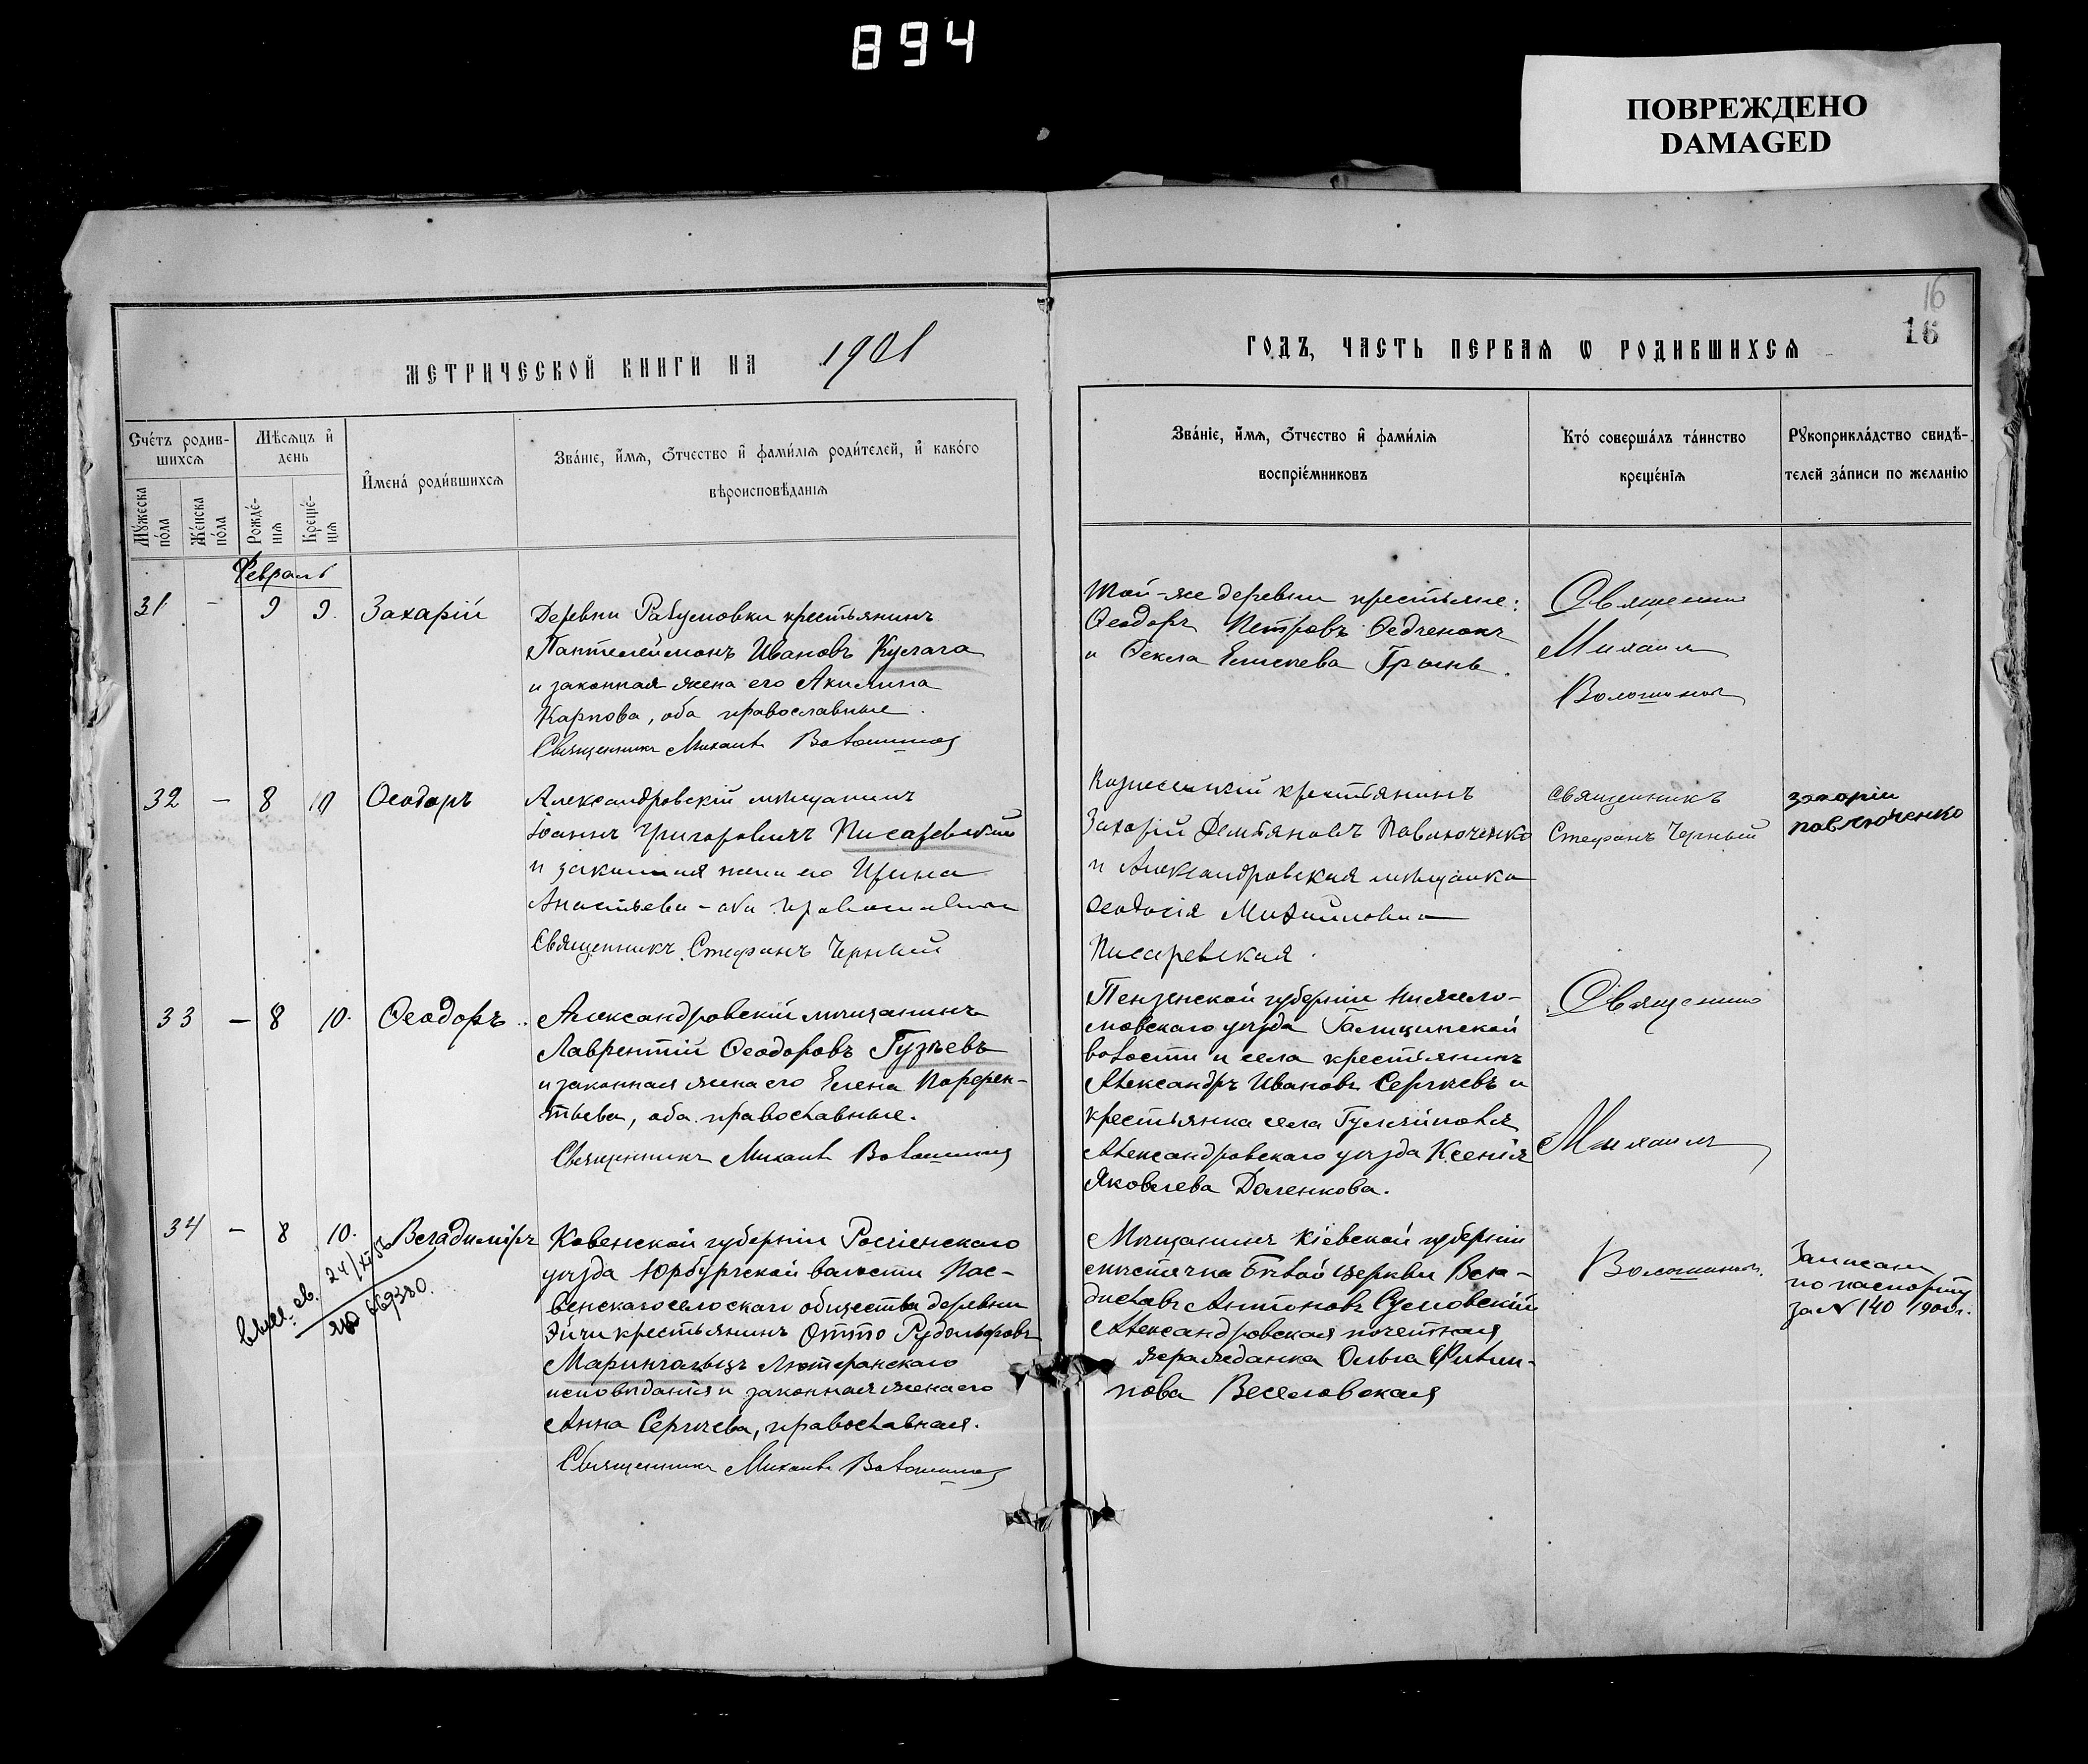 894
ПОВРЕЖДЕНО
DAMAGED
16
16
МЕТРИЧЕСКОЙ КНИГИ НА 1901
ГОДЪ, ЧАСТЬ ПЕРВАЯ Ѡ РОДИВШИХСЯ
Счетъ родив-
шихся
Мужеска пола
Женска пола
Мѣсяцъ и день
Рожде-
нія
Креще-
нія
Имена родившихся
Званіе, имя, отчество и фамилія родителей, и какого
вѣроисповѣданія
Званіе, имя, отчество и фамилія
воспріемниковъ
Кто совершалъ таинство
крещенія
Рукоприкладство свидѣ-
телей записи по желанію
Февраль
31 - 9 9. Захарій
Деревни крестьянинъ
Пантелеймонъ Ивановъ Кулага
и законная жена его Акилина
Карпова, оба православные.
Священникъ Михаилъ Волошиновъ
Той-же деревни крестьяне:
Ѳеодоръ Петровъ Ѳедченокъ
и Ѳекла Грынь.
Священникъ
Михаилъ
Волошиновъ
32 - 8 10 Ѳеодоръ
Александровскій мѣщанинъ
Іоаннъ Григоровичъ Писаревскій
и законная жена его Ирина
оба православные
Священникъ Стефанъ Черный
крестьянинъ
Захарій Демьяновъ Павлюченко
и Александровская мѣщанка
Ѳеодосія Михайловна
Писаревская.
Священникъ
Стефанъ Черный
захарій
павлюченко
33 - 8 10. Ѳеодоръ.
Александровскій мѣщанинъ
Лаврентій Ѳеодоровъ Гузѣевъ
и законная жена его Елена Порфен-
тьева, оба православные.
Священникъ Михаилъ Волошиновъ
Пензенской губерніи Нижнело-
мовскаго уѣзда Голицинской
волости и села крестьянинъ
Александръ Ивановъ Сергѣевъ и
крестьянка села Гуляйполя
Александровскаго уѣзда Ксенія
Яковлева Доленкова.
Священникъ
Михаилъ
Волошиновъ.
34 - 8 10. Владиміръ
выс. св. 24/XI 56
669380.
Ковенской губерніи Россіенскаго
уѣзда Юрбургской волости Пас-
венскаго сельскаго общества деревни
Эйчи крестьянинъ Отто Рудольфовъ
Лютеранскаго
исповѣданія и законная жена его
Анна Сергѣева, православная.
Священникъ Михаилъ Волошиновъ
Мѣщанинъ Кіевской губерніи
мѣстечка Бѣлой Церкви Вла-
диславъ Антоновъ Сумовскій
Александровская почетная
гражданка Ольга Филип-
пова Веселовская
Записанъ
по паспорту
за № 140 1900 г.